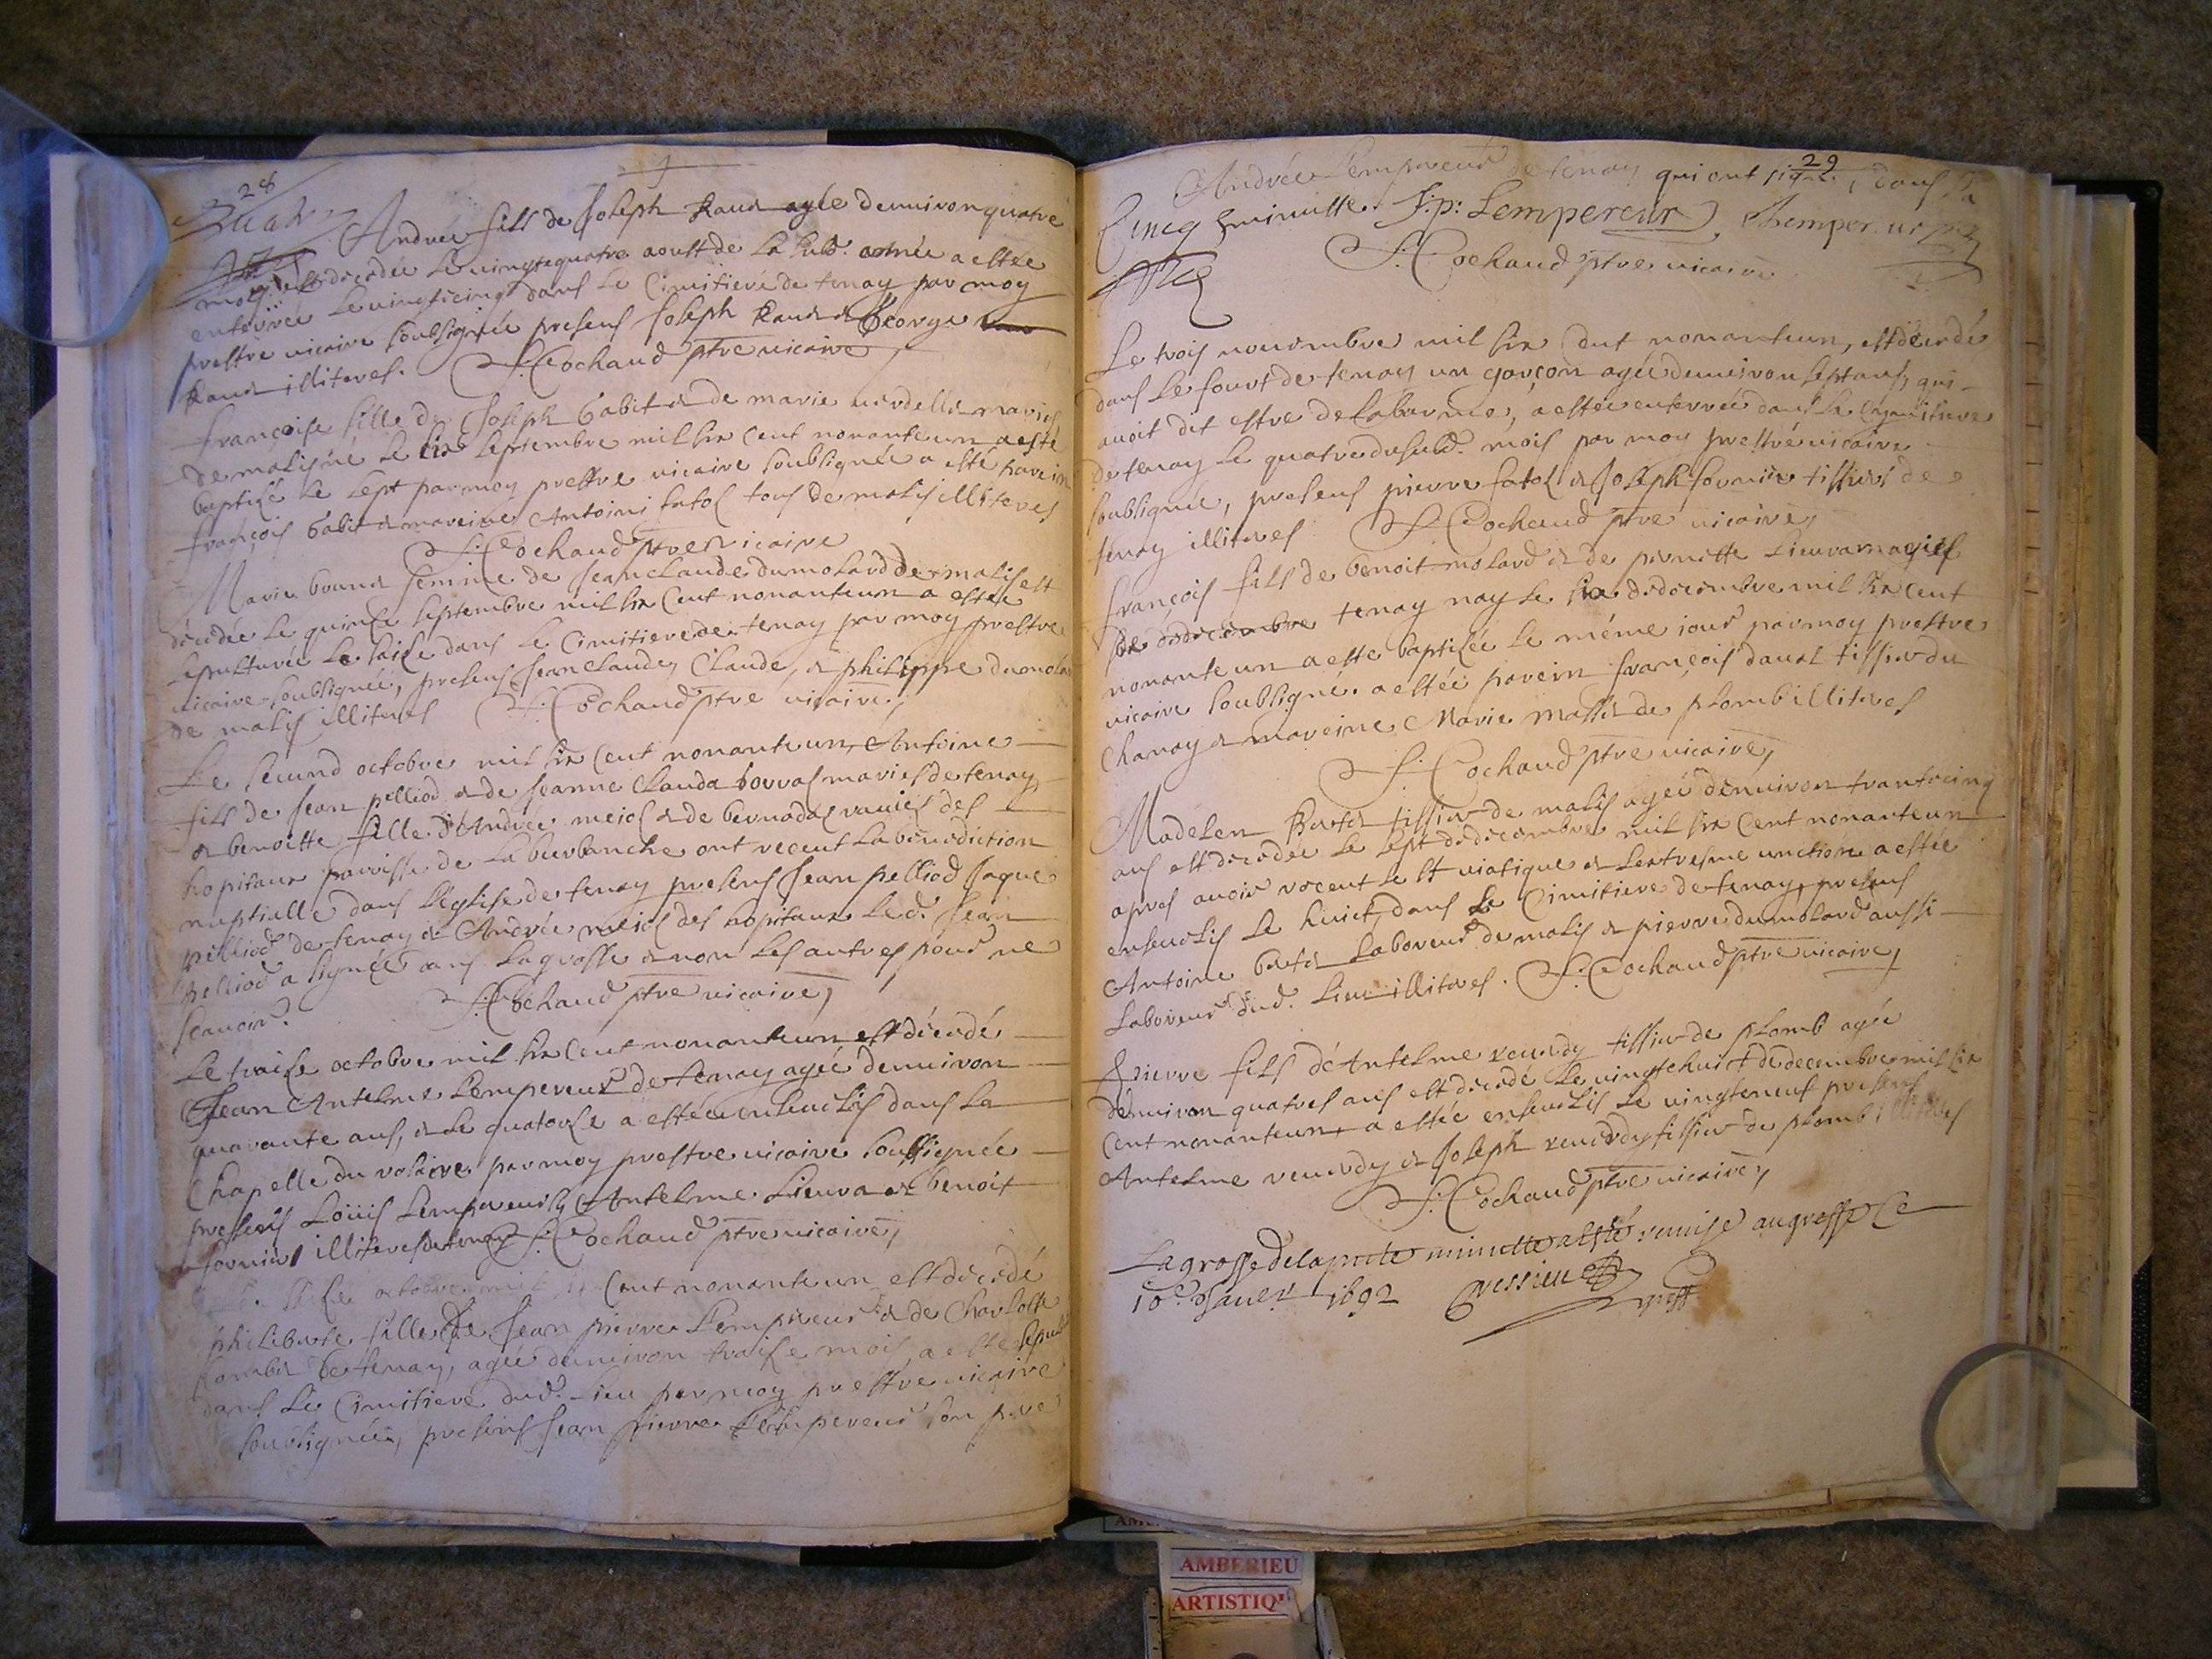 28
André fils de Joseph Raud agée denuiron quatre
mois est decedée le uingtequatre aoust de la susd. année a estée
enterrée le uingtecinq dans le Cimitiere de tenay par moy
prestre uicaire soubsignée presens Joseph Raud & George
Raud illiteres. S. Cochaud ptre uicaire,
françoise fille de Joseph babit & de marie mariés
de malis née le six septembre mil six cent nonanteun a esté
baptizé le sept par moy prestre uicaire soubsignée a esté parein
françois babit & mareine Antoini tous de malis illiteres
S. Cochaud ptre uicaire
Marie femme de Jean claude dumolard de malis est
décedée le quinze septembre mil six Cent nonanteun a estée
sepulturée le saize dans le Cimitiere de tenay par moy prestre
uicaire soubsignée, presens Jean claude, Claude, & philippe dumolar
de malis illiteres S. Cochaud ptre uicaire,
Le second octobre mil six cent nonanteun, Antoine
fils de Jean pelliod & de Jeanne Clauda borras mariés de tenay
& benoitte fille d'André & de bernada mariés des
hopitaux parroisse de la burbanche ont receut la benediction
nuptialle dans l'église de tenay presens Jean pelliod Jaque
pelliod de tenay & André des hopitaux led. Jean
pelliod a signée dans la grosse & non les autres pour ne
scauoir. S. Cochaud ptre uicaire,
Le traise octobre mil six Cent nonanteun est décedé
Jean Antelme Lempereur de tenay agée denuiron
quarante ans, & le quatorze a estée enseuelis dans la
Chapelle du rosaire par moy prestre uicaire soussignée
presens Loüis Lempereur, Antelme Lieura & benoit
fornier illiteres de tenay S. Cochaud ptre uicaire,
octobre mil six Cent nonanteun est décedé
philiberte fille de Jean pierre Lempereur & de Charlotte
de tenay, agée denuiron traise mois a esté sepul
dans le Cimitiere dud. lieu par moy prestre uicaire
soubsignée, presens Jean pierre Lempereur son pere
29
André Lempereur de tenay qui ont signé dans la
Cinq minutte. J: p: Lempereur.
S. Cochaud ptre uicaire
Le trois nouembre mil six Cent nonanteun, est décedé
dans le fourt de tenay un garçon agée denuiron sept ans, qui
auoit dit estre de labarme, a estée enterrée dans le Cymitiere
de tenay le quatre du susd. mois par moy prestre uicaire
soubsigné, presens pierre & Joseph fornier tissiers de
tenay illiteres S. Cochaud ptre uicaire,
françois fils de benoit molard & de pernette Lieura mariés
de tenay nay le six de decembre mil six Cent
nonanteun a esté baptisée le méme iour par moy prestre
uicaire soubsigné. a estée parein françois tissier du
Chanay & mareine Marie de plomb illiteres
S. Cochaud ptre uicaire,
Madelen tissier de malis agée denuiron trantecinq
ans est decedée le sept de decembre mil six Cent nonanteun
apres auoir receut le st uiatique & lextresme unction a estée
enseuelis le huict, dans le Cimitiere de tenay, presens
Antoine laboreur de malis & pierre dumolard aussi
laboreur dud. lieu illiteres. S. Cochaud ptre uicaire,
pierre fils d'Antelme tissier de plomb agée
denuiron quatres ans est décedé le uingtehuict de decembre mil six
Cent nonanteun, a estée enseuelis le uingteneuf presens
Antelme & Joseph tissier de plomb illiteres
S. Cochaud ptre uicaire,
La grosse de la pnte minutte a esté remise au greffe Ce
10e Januer 1692
AMBERIEU
ARTISTIQU